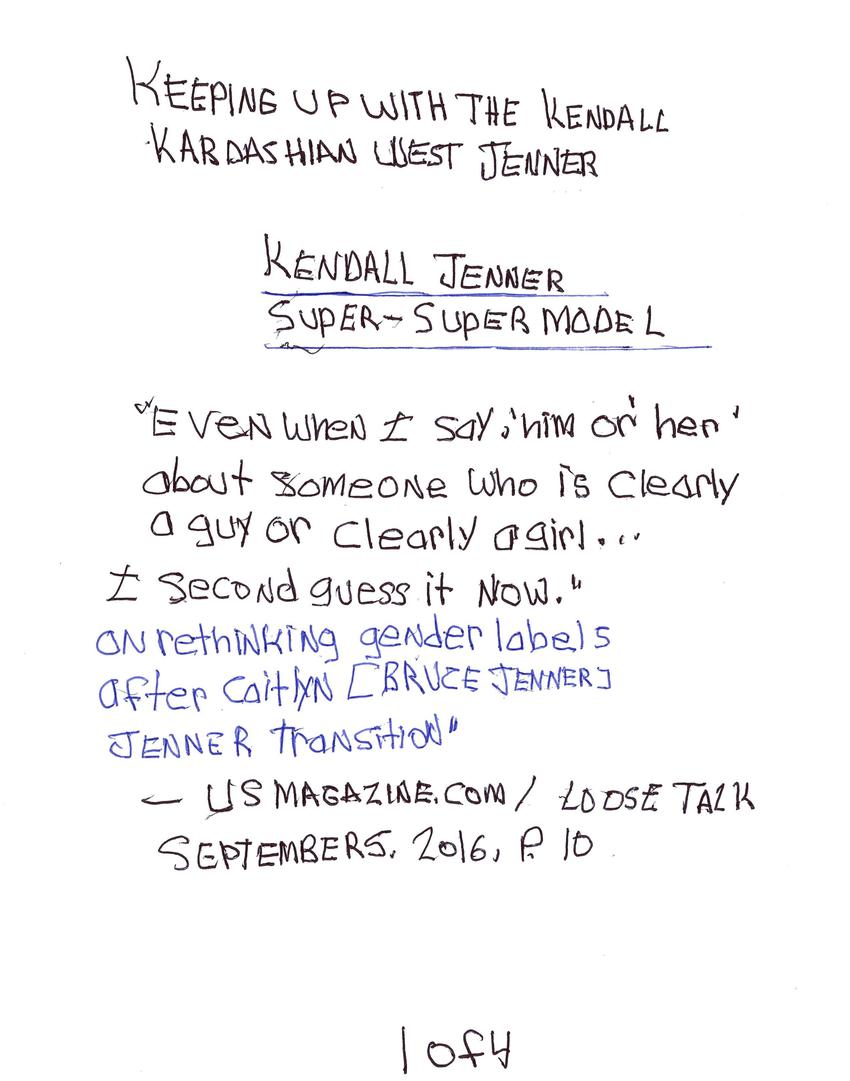 KEEPING UP WITH THE KENDALL
KARDASHIAN WEST JENNER
KENDALL JENNER
SUPER-SUPERMODEL
"EVEN WHEN I SAY, 'him or' her'
about SOMEONE who is Clearly
a guy or Clearly a girl...
I Second guess it NOW."
ON rethinking gender labels
after Caitlyn [BRUCE JENNER]
JENNER transition"
— US MAGAZINE.COM / LOOSE TALK
SEPTEMBER 5, 2016, P. 10
1 of 4